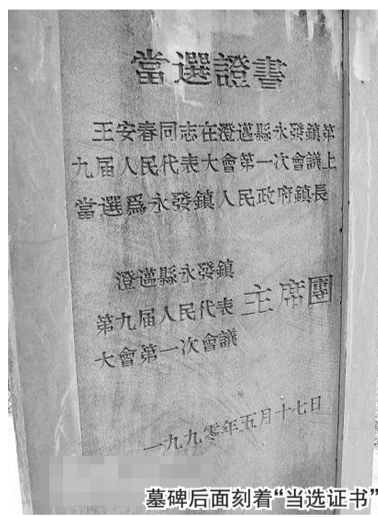 當選證書
王安春同志在澄邁縣永發鎮第
九届人民代表大會第一次會議上
當選爲永發鎮人民政府鎮長
澄邁縣永發鎮
第九届人民代表
大會第一次會議
主席團
一九九零年五月十七日
墓碑后面刻着“当选证书”